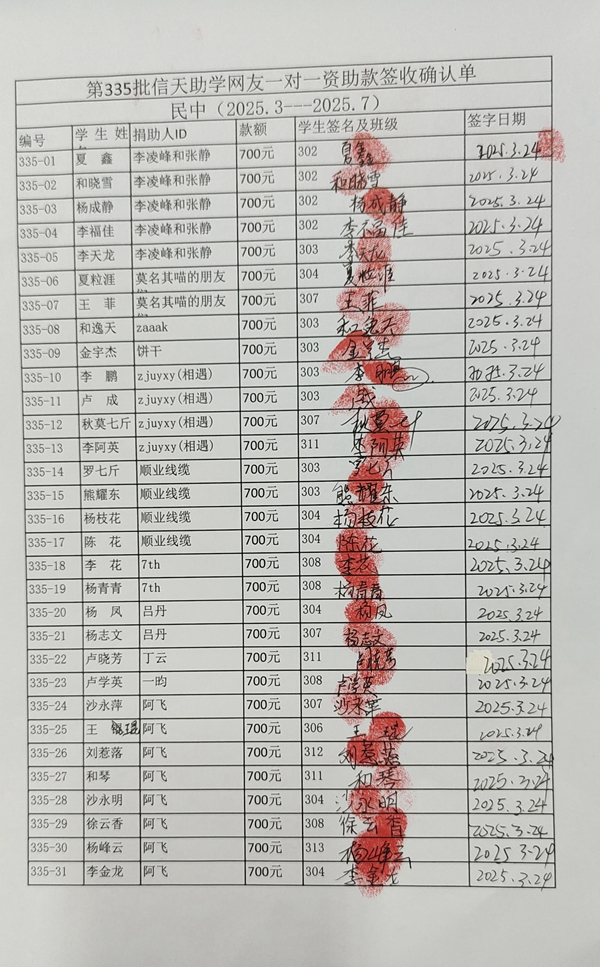 第335批信天助学网友一对一资助款签收确认单
民中（2025.3---2025.7）
编号 学 生 姓 捐助人ID 款额 学生签名及班级 签字日期
335-01 夏 鑫 李凌峰和张静 700元 302 夏鑫 2025.3.24
335-02 和晓雪 李凌峰和张静 700元 302 和晓雪 2025.3.24
335-03 杨成静 李凌峰和张静 700元 302 杨成静 2025.3.24
335-04 李福佳 李凌峰和张静 700元 302 李福佳 2025.3.24
335-05 李天龙 李凌峰和张静 700元 303 李天龙 2025.3.24
335-06 夏粒涯 莫名其喵的朋友 700元 304 夏粒涯 2025.3.24
335-07 王 菲 莫名其喵的朋友 700元 307 王菲 2025.3.24
335-08 和逸天 zaaak 700元 303 和逸天 2025.3.24
335-09 金宇杰 饼干 700元 303 金宇杰 2025.3.24
335-10 李 鹏 zjuyxy(相遇) 700元 303 李鹏 2025.3.24
335-11 卢 成 zjuyxy(相遇) 700元 303 2025.3.24
335-12 秋莫七斤 zjuyxy(相遇) 700元 307 秋莫七斤 2025.3.24
335-13 李阿英 zjuyxy(相遇) 700元 311 李阿英 2025.3.24
335-14 罗七斤 顺业线缆 700元 303 罗七斤 2025.3.24
335-15 熊耀东 顺业线缆 700元 303 熊耀东 2025.3.24
335-16 杨枝花 顺业线缆 700元 304 杨枝花 2025.3.24
335-17 陈 花 顺业线缆 700元 304 陈花 2025.3.24
335-18 李 花 7th 700元 308 李花 2025.3.24
335-19 杨青青 7th 700元 308 杨青青 2025.3.24
335-20 杨 凤 吕丹 700元 304 杨凤 2025.3.24
335-21 杨志文 吕丹 700元 307 杨志文 2025.3.24
335-22 卢晓芳 丁云 700元 311 卢晓芳 2025.3.24
335-23 卢学英 一昀 700元 308 卢学英 2025.3.24
335-24 沙永萍 阿飞 700元 307 沙永萍 2025.3.24
335-25 王 琨 阿飞 700元 306 王琨 2025.3.24
335-26 刘惹落 阿飞 700元 312 刘惹落 2025.3.24
335-27 和琴 阿飞 700元 311 和琴 2025.3.24
335-28 沙永明 阿飞 700元 304 沙永明 2025.3.24
335-29 徐云香 阿飞 700元 308 徐云香 2025.3.24
335-30 杨峰云 阿飞 700元 313 杨峰云 2025.3.24
335-31 李金龙 阿飞 700元 304 李金龙 2025.3.24